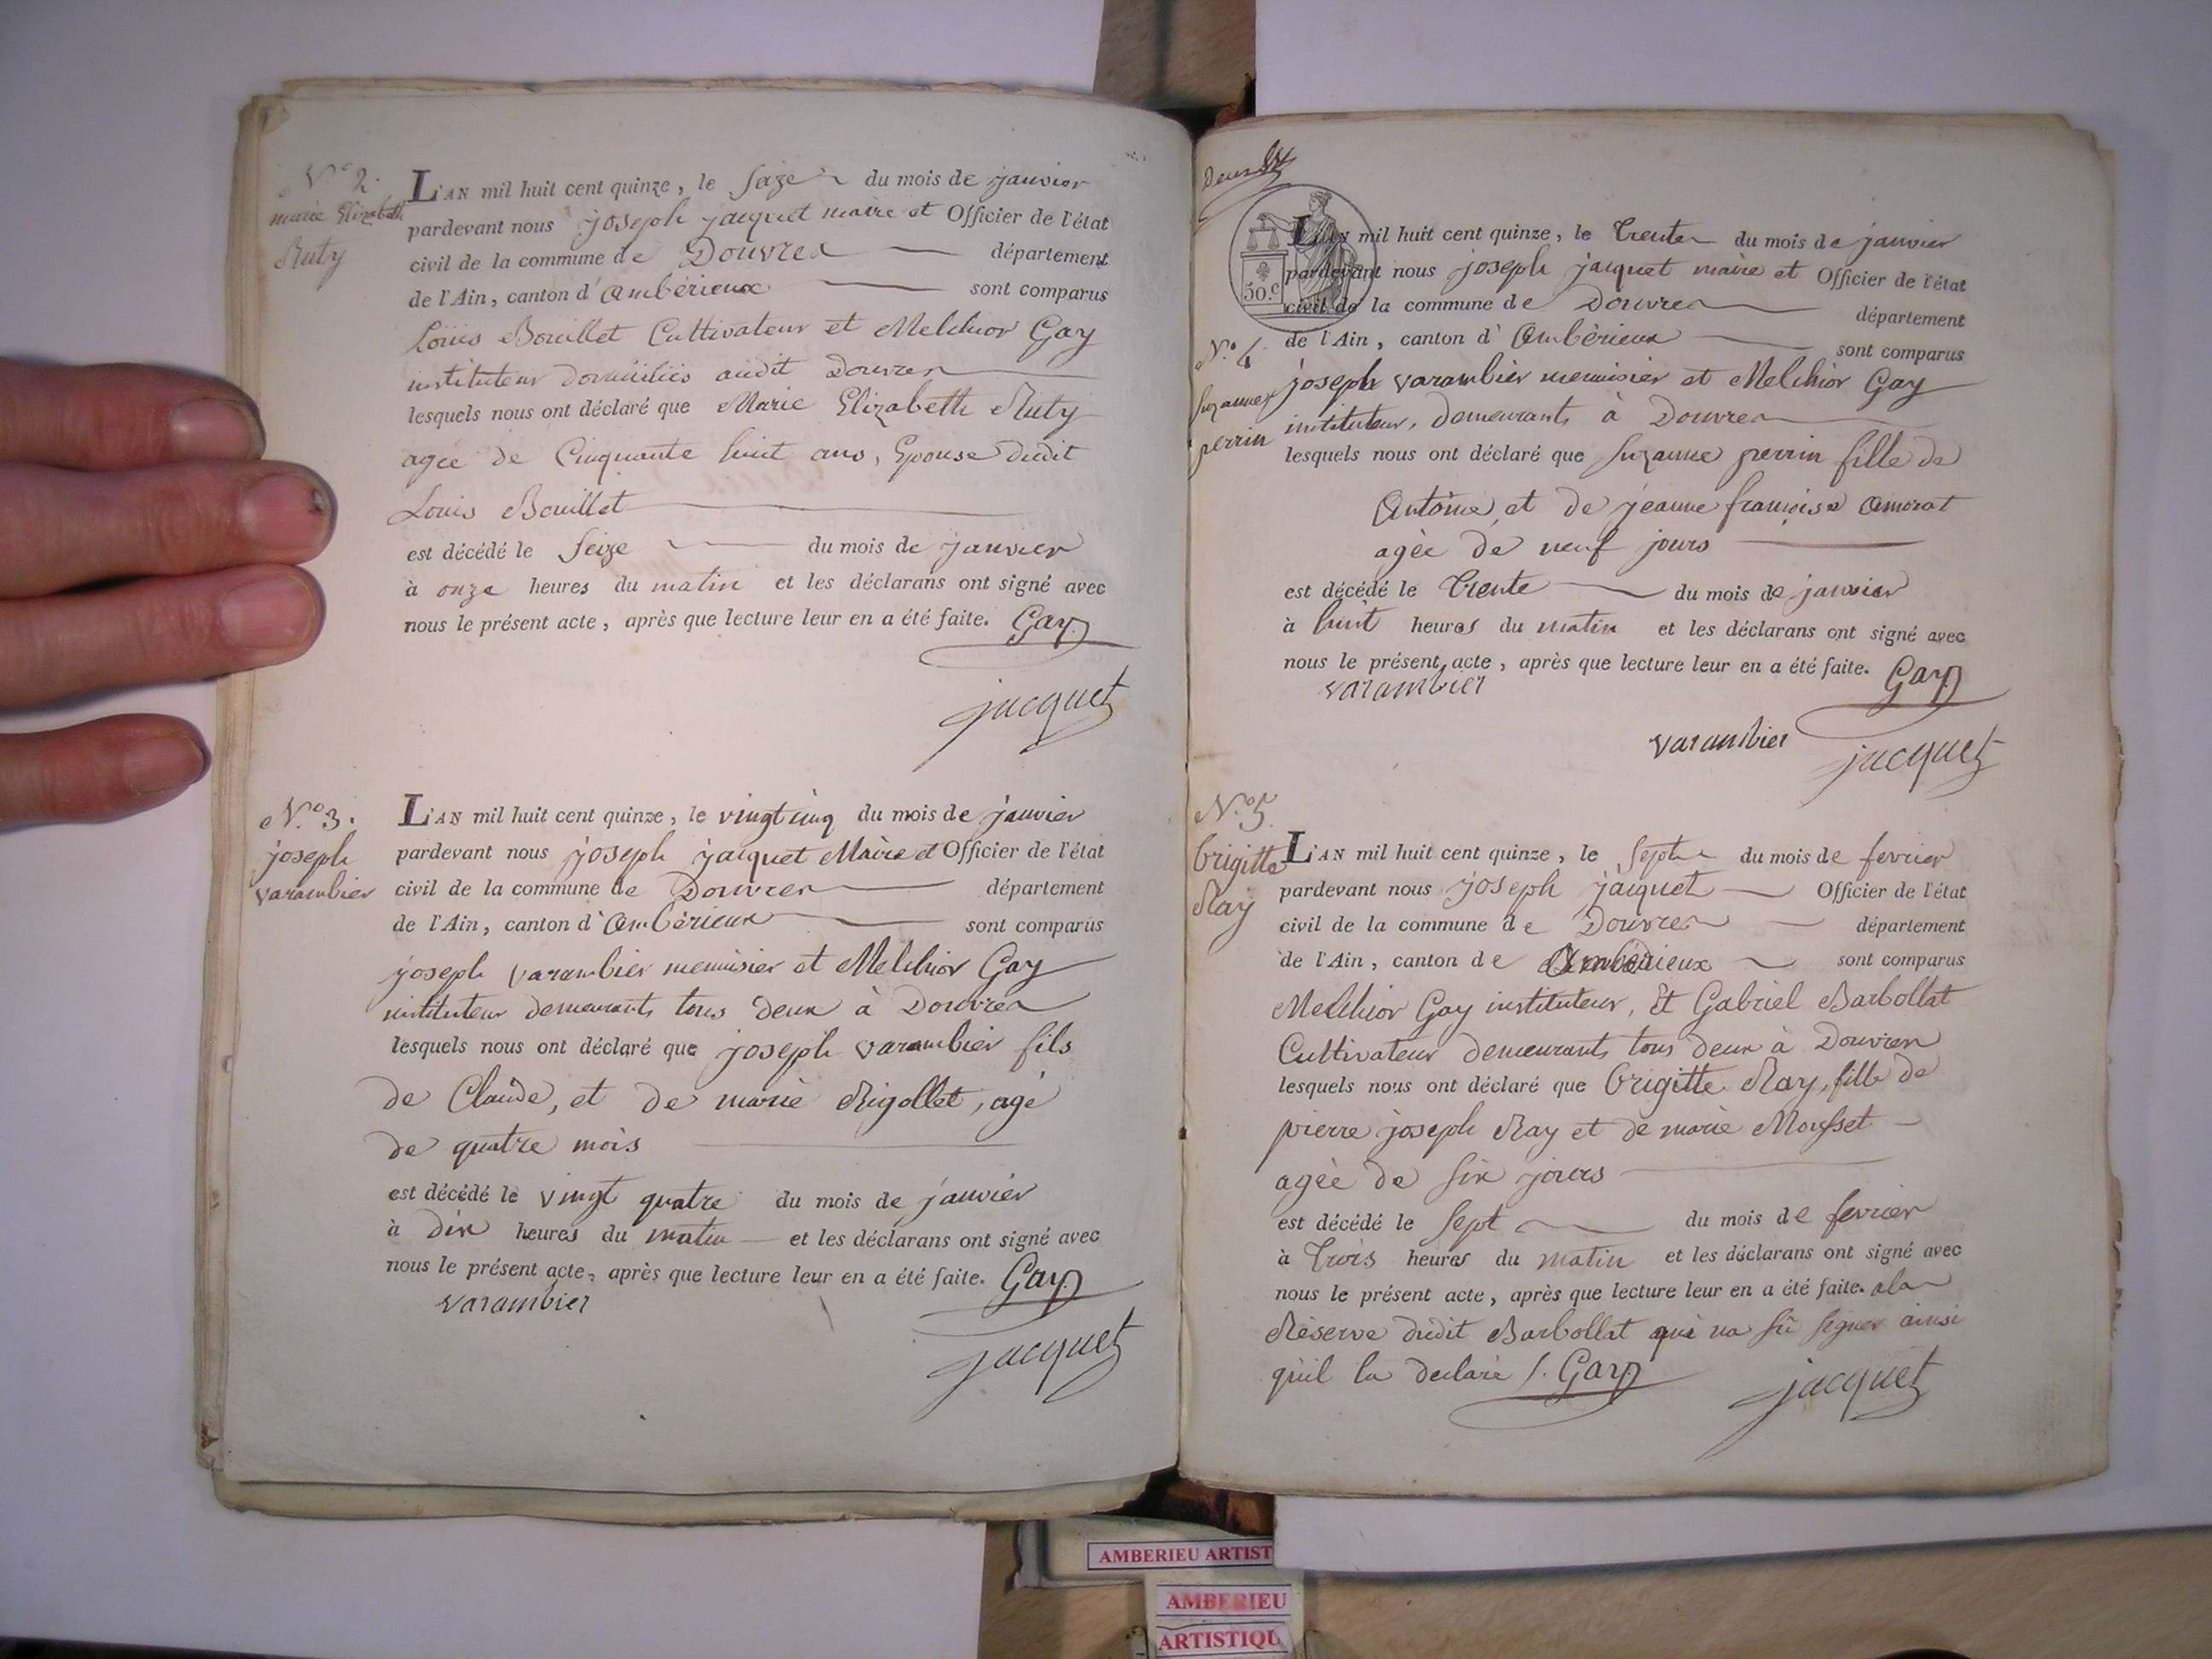 N.º 2.
marie Elizabeth
Ruty
L'AN mil huit cent quinze, le seize du mois de janvier
pardevant nous joseph jacquet maire et Officier de l'état
civil de la commune de Douvres département
de l'Ain, canton d'ambérieux sont comparus
Louis Bouillet Cultivateur et Melchior Gay
instituteur domiciliés audit Douvres
lesquels nous ont déclaré que Marie Elizabeth Ruty
agée de Cinquante huit ans, Epouse dudit
Louis Bouillet
est décédé le seize du mois de janvier
à onze heures du matin et les déclarans ont signé avec
nous le présent acte, après que lecture leur en a été faite. Gay
jacquet
N.º 3.
joseph
varambier
L'AN mil huit cent quinze, le vingt cinq du mois de janvier
pardevant nous joseph jacquet Maire et Officier de l'état
civil de la commune de Douvres département
de l'Ain, canton d'ambérieux sont comparus
joseph varambier menuisier et Melchior Gay
instituteur demeurants tous deux à Douvres
lesquels nous ont déclaré que joseph varambier fils
de Claude, et de marie Rigollet, agé
de quatre mois
est décédé le vingt quatre du mois de janvier
à dix heures du matin et les déclarans ont signé avec
nous le présent acte, après que lecture leur en a été faite. Gay
varambier
jacquet
50.c
N.º 4
suzanne
perrin
L'AN mil huit cent quinze, le trente du mois de janvier
pardevant nous joseph jacquet maire et Officier de l'état
civil de la commune de Douvres département
de l'Ain, canton d'Ambérieux sont comparus
joseph varambier menuisier et Melchior Gay
instituteur, demeurants à Douvres
lesquels nous ont déclaré que suzanne perrin fille de
Antoine, et de jeanne françoise amorat
agée de neuf jours
est décédé le trente du mois de janvier
à huit heures du matin et les déclarans ont signé avec
nous le présent acte, après que lecture leur en a été faite. Gay
varambier
varambier
jacquet
N.º 5.
brigitte
Ray
L'AN mil huit cent quinze, le sept du mois de fevrier
pardevant nous joseph jacquet Officier de l'état
civil de la commune de Douvres département
de l'Ain, canton de Ambérieux sont comparus
Melchior Gay instituteur, Et Gabriel Barbollat
Cultivateur demeurants tous deux à Douvres
lesquels nous ont déclaré que brigitte Ray, fille de
pierre joseph Ray et de marie Mousset
agée de six jours
est décédé le sept du mois de fevrier
à trois heures du matin et les déclarans ont signé avec
nous le présent acte, après que lecture leur en a été faite. a la
Réserve dudit Barbollat qui na sû signer ainsi
quil la declaré /. Gay
jacquet
AMBERIEU ARTIST
AMBERIEU
ARTISTIQU